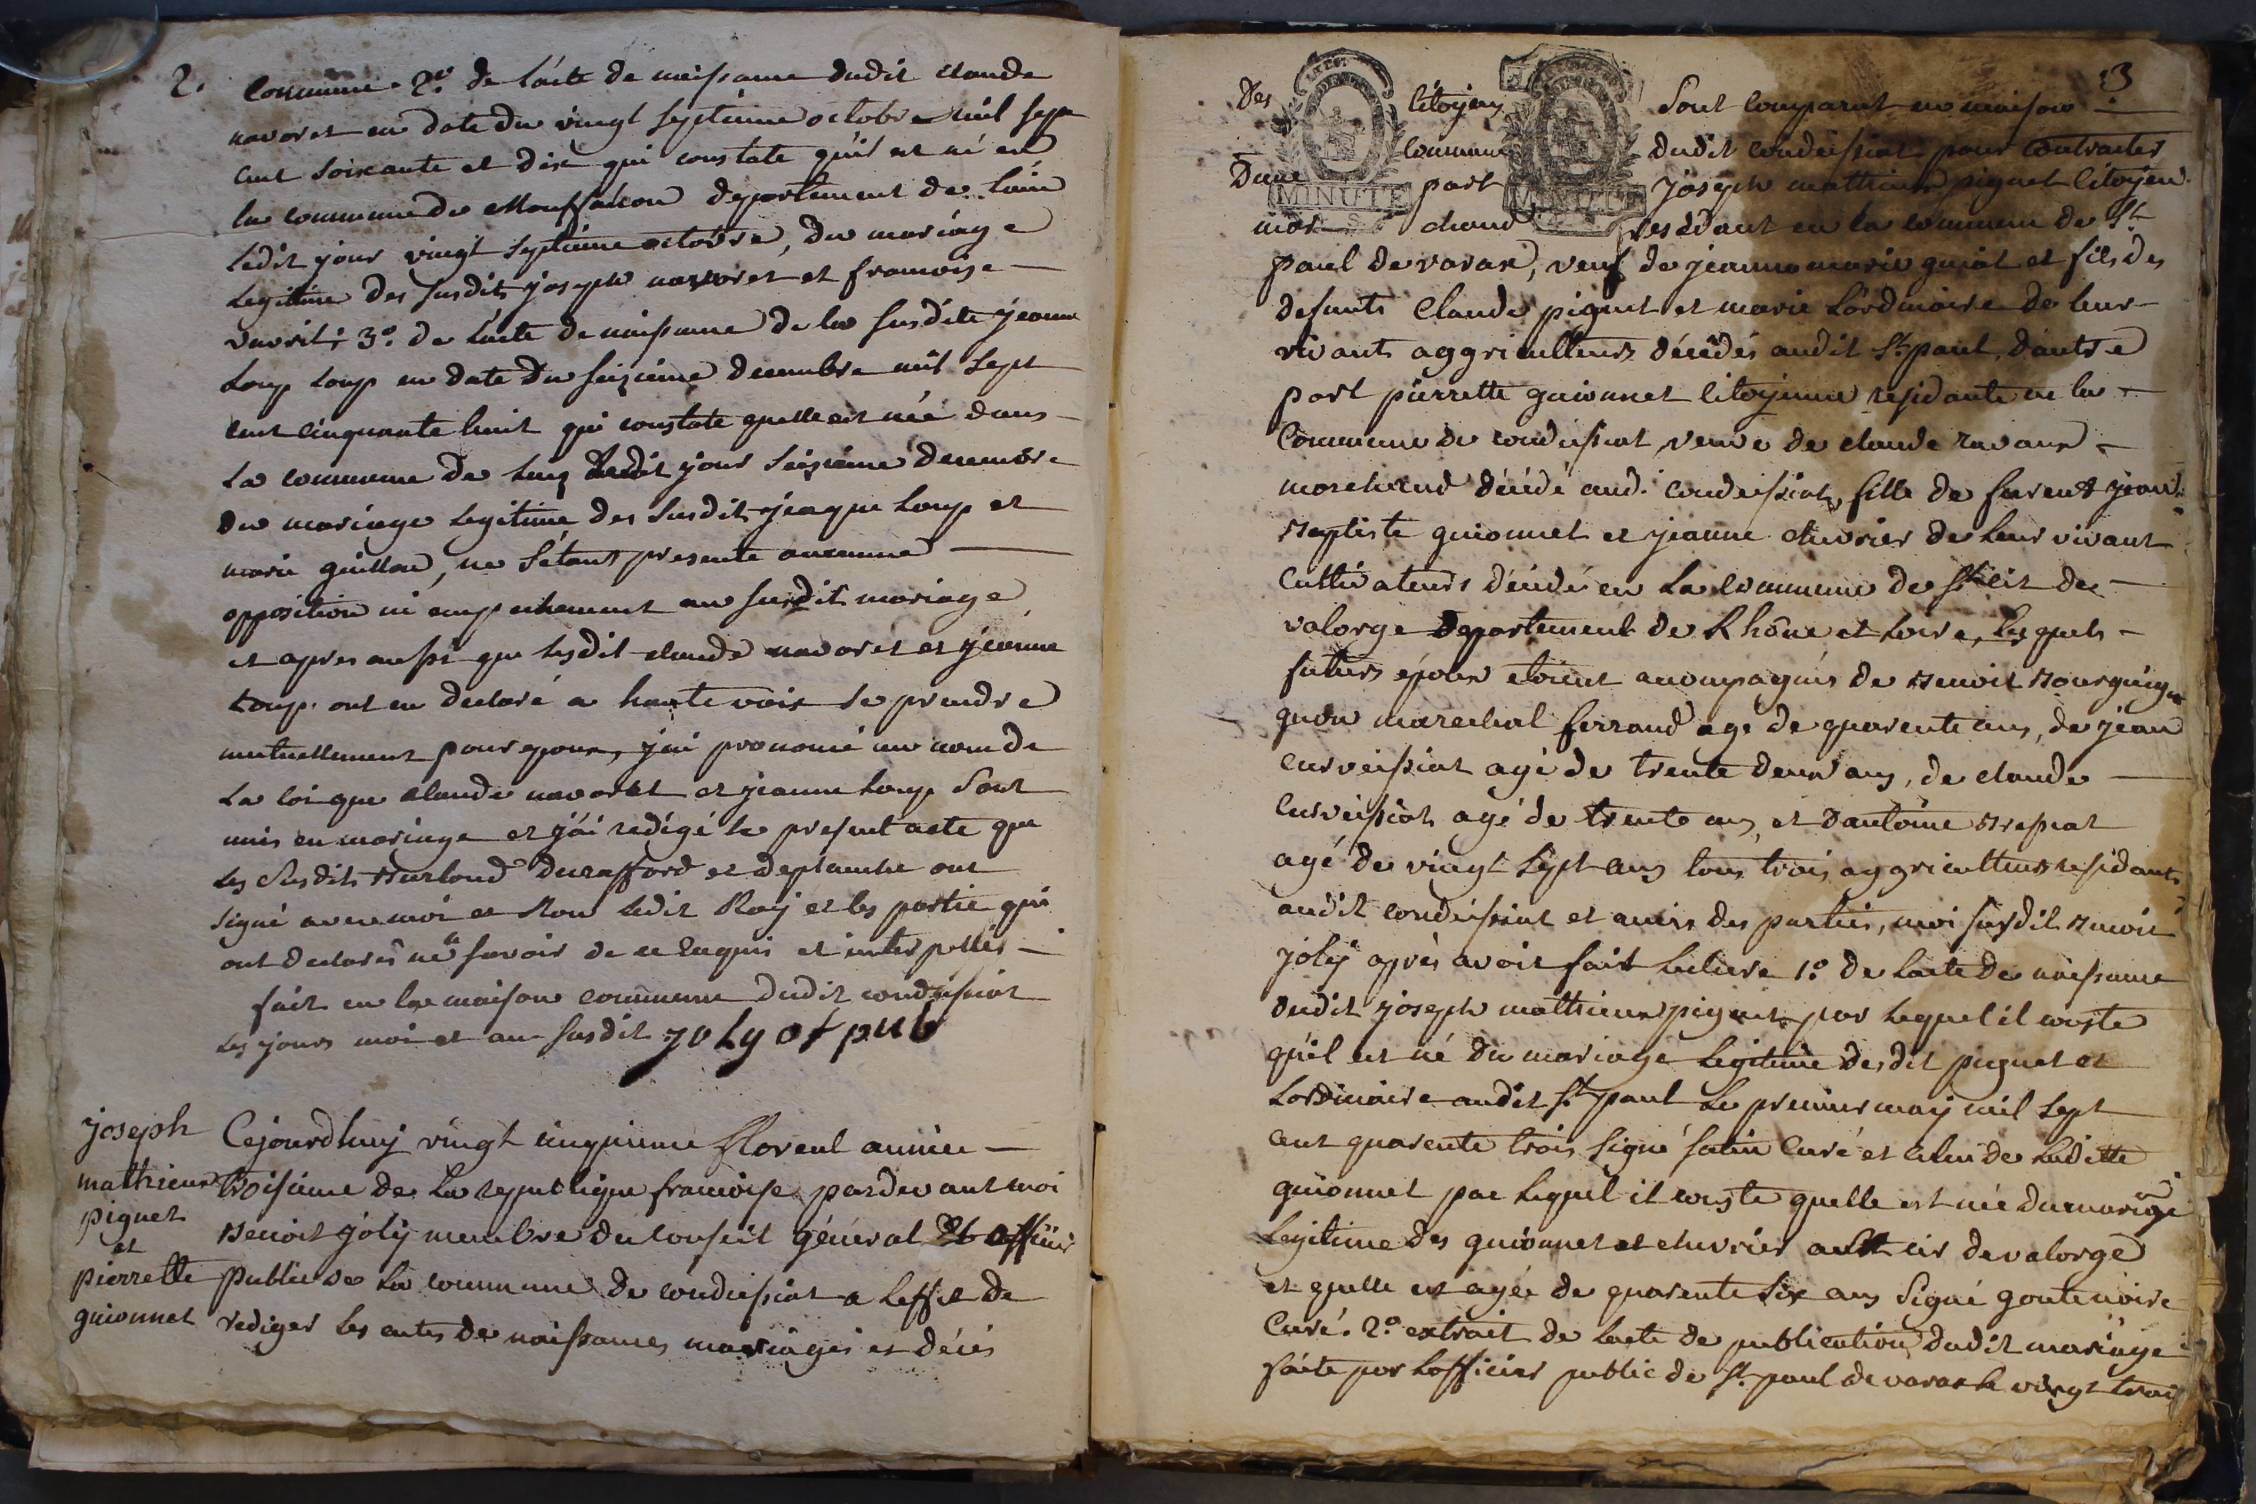 2.
Commune. 2.° de l'acte de naissance dudit claude
navoret en date du vingt septieme octobre mil sept
cent soixante et dix qui constate qu'il est né en
la commune de Monfalcon departement de l'ain
ledit jour vingt septieme octobre, du mariage
legitime des susdits joseph navoret et francoise
vuvrit; 3.° de l'acte de naissance de la susdite jeanne
Loup Loup en date du seizieme decembre mil sept
cent cinquante huit qui constate quelle est née dans
la commune de ledit jour seizieme decembre
du mariage legitime des susdits jacque Loup et
marie guillon, ne s'etant presente aucunne
opposition ni empechement au susdit mariage
et apres aussi que lesdit claude navoret et jeanne
Loup. ont eu declaré a haute voix se prendre
mutuellement pour epoux, j'ai prononcé au nom de
la loi que claude navoret et jeanne Loup sont
unis en mariage et j'ai redigé le present acte que
les susdits Burloud Durafford et Deplanche ont
signé avec moi et non ledit Roy et les partie qui
ont declarés ne savoir de ce enquis et interpellés
fait en la maison commune dudit condeissiat
les jours moi et an susdit joly of pub
joseph
mathieux
piguet
et
pierrette
guionnet
Cejourdhuy vingt cinquieme floreal année
troisieme de la republique francoise pardevant moi
Benoit joly membre du conseil général et officier
public de la commune de condeissiat a leffet de
rediger les actes de naissances mariages et décés
3
Des citoyens sont comparut en maison
commune dudit condeissiat pour contracter
Dune part joseph mathieux piguet citoyen
mar chand residant en la commune de St
paul de varax, veuf de jeanne marie guiot et fils des
defunts Claude piguet et marie Lordinaire de leur
vivants aggriculteurs décédés audit St. paul, dautre
part pierrette guionnet citoyenne residante en la
Commune de condeissiat veuve de claude ravaux
marchand décédé aud. condeissiat, fille de furent jean
Baptiste guionnet et jeanne chuvrier de leur vivant
cultivateurs décédé en la commune de St cir de
valorge departement de Rhône et Loire, lesquels
futurs époux etoient accompagnés de Benoit Bourguig
gnon marechal ferrand age de quarente ans, de jean
curveissiat agé de trente deux ans, de claude
curveissiat agé de trente ans, et dantoine Bressat
agé de vingt sept ans tous trois aggriculteurs residants
audit condeissiat et amis des parties, moi susdit Benoit
joly après avoir fait lecture 1.° de lacte de naissance
dudit joseph mathieux piguet par lequel il conste
qu'il est né du mariage legitime desdit piguet et
Lordinaire audit St. paul le premier may mil sept
cent quarente trois signé curé et celui de ladite
guionnet par lequel il conste quelle est née du mariage
legitime des guionnet et chuvrier a St cir de valorge
et quelle est agée de quarente six ans signé goutenoire
Curé. 2.° extrait de lacte de publication dudit mariage
faite par lofficier public de St. paul de varax le vingt trois
MINUTE
MINUTE